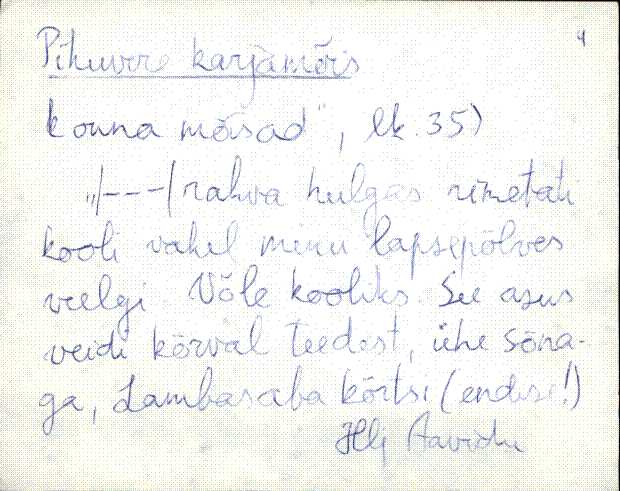 4
Pihuvere karjamõis
konna mõisad", lk. 35)
"/---/ rahva hulgas nimetati
kooli vahel minu lapsepõlves
veelgi Võle kooliks. See asus
veidi kõrval teedest, ühe sõna-
ga, Lambasaba kõrtsi (endise!)
Aavidu